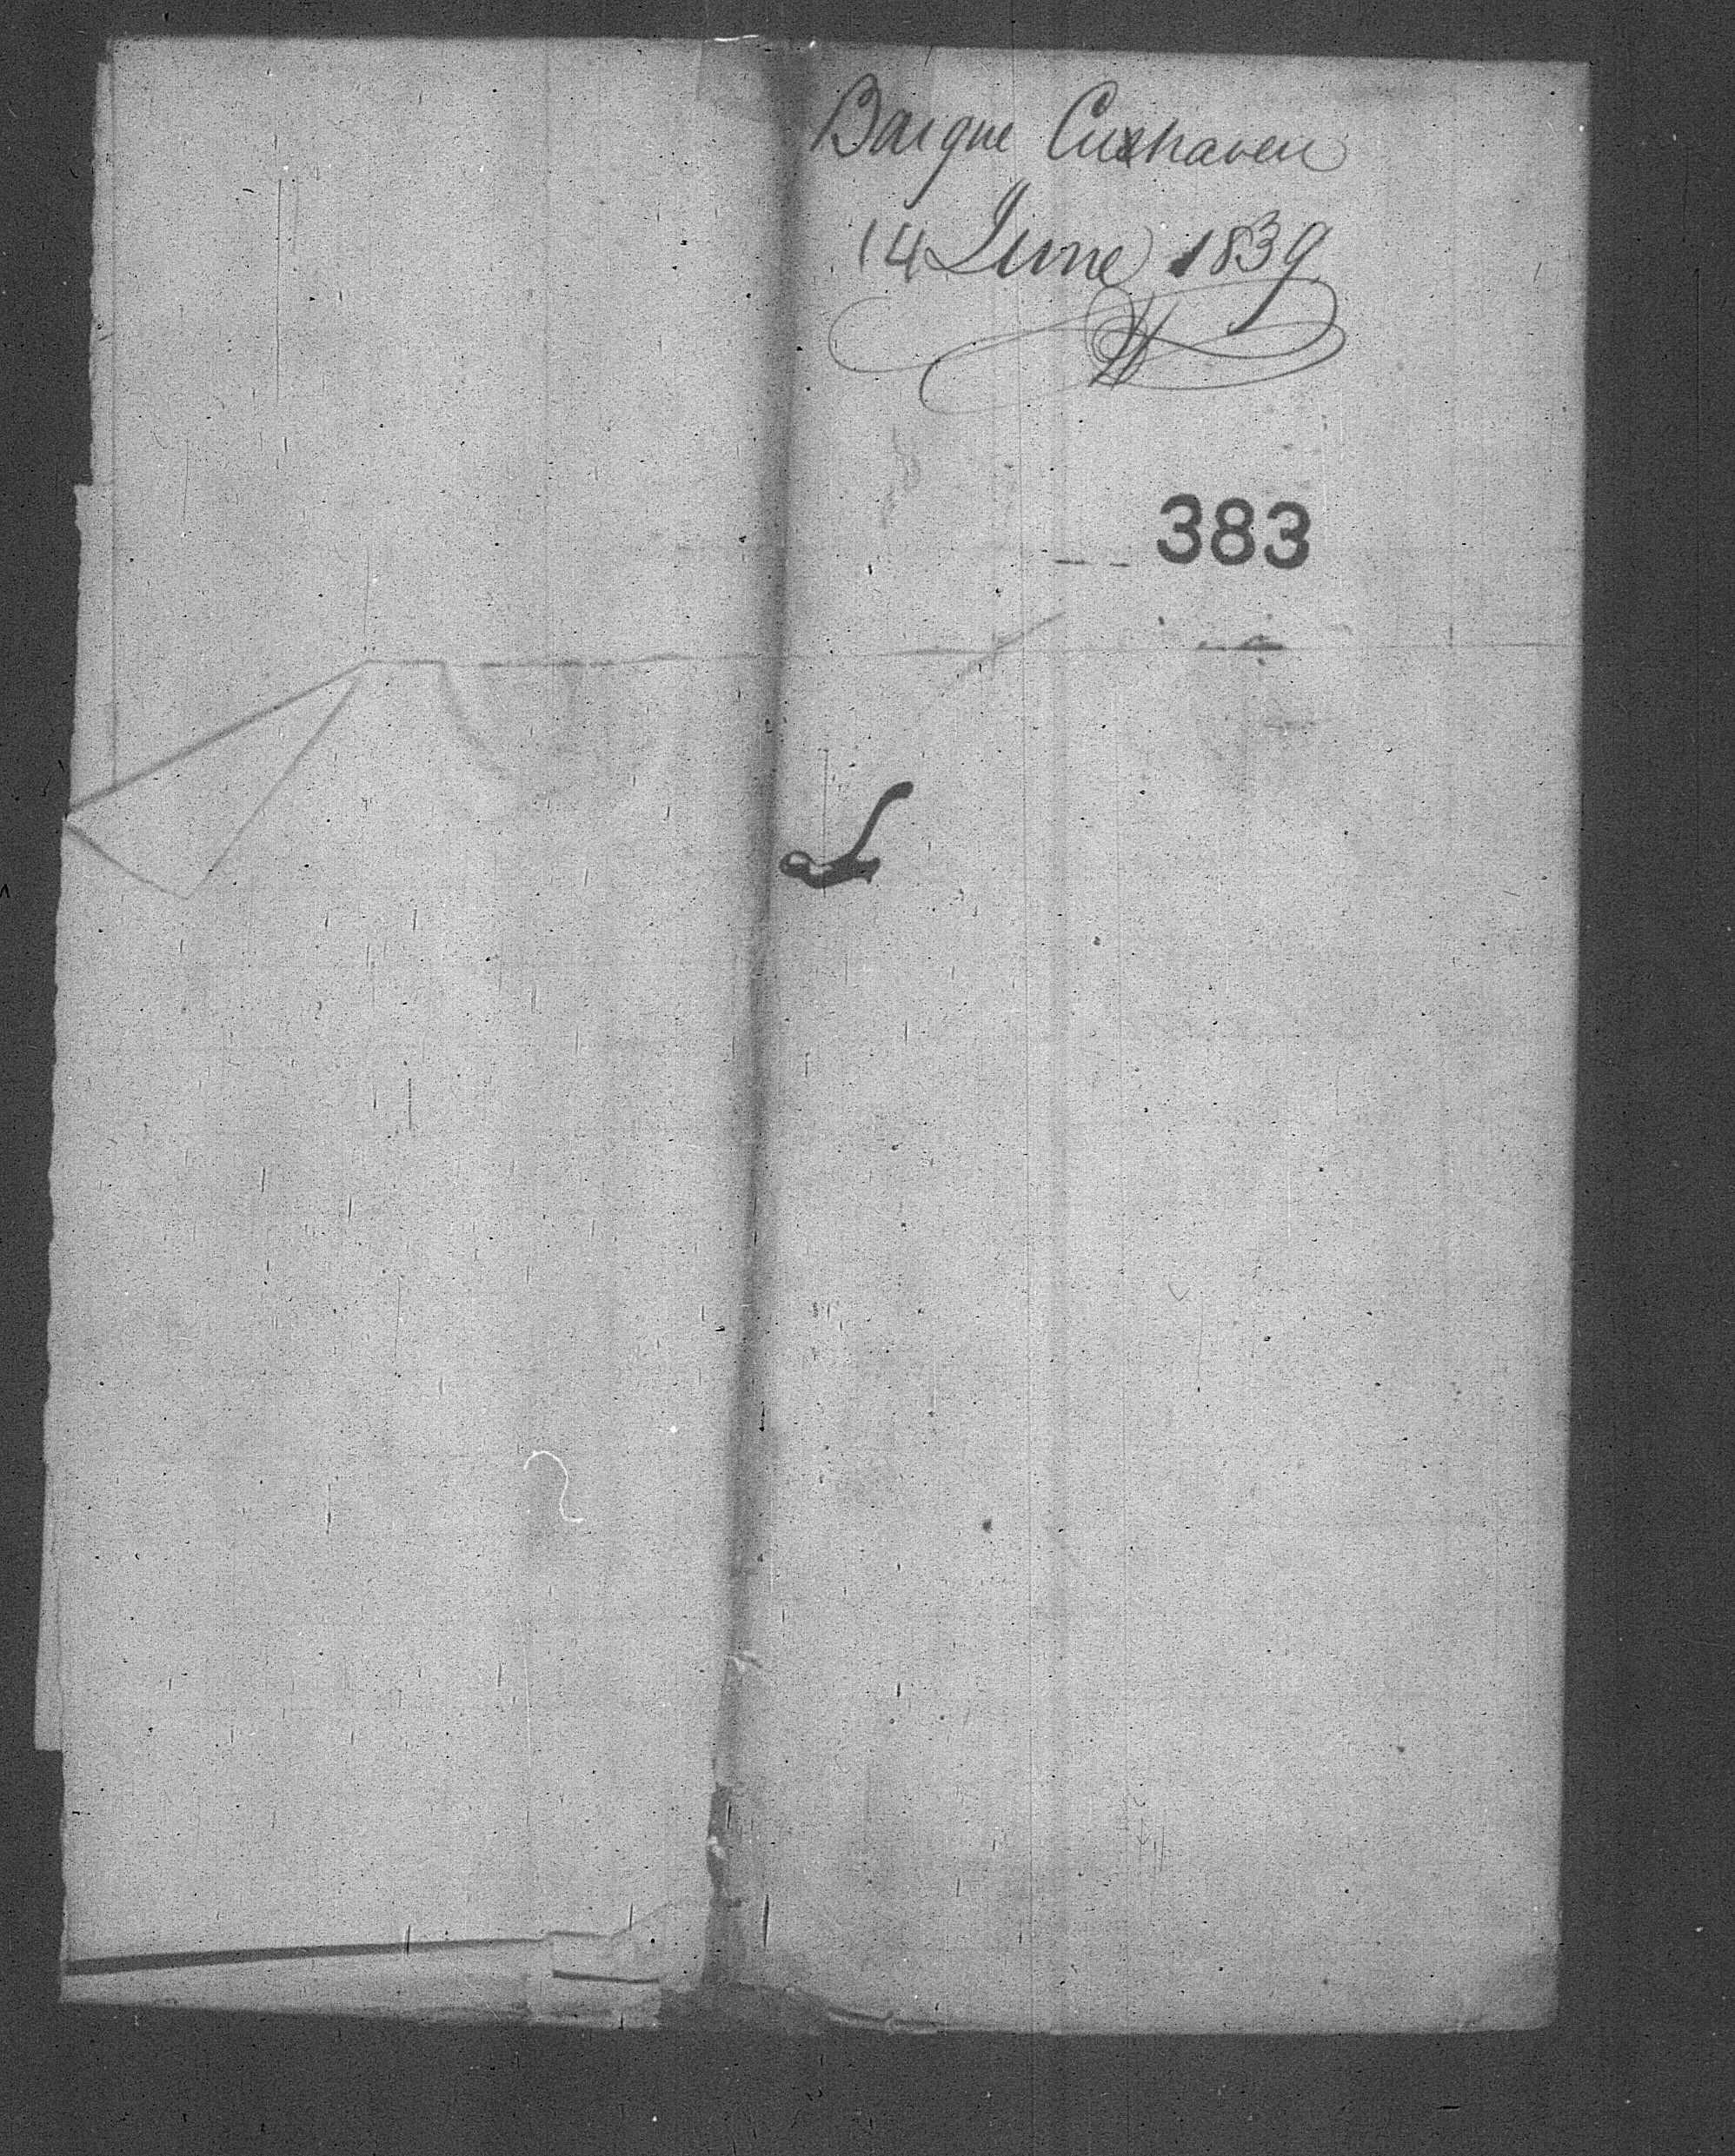 Barque Cuxhaven
14 June 1839
383